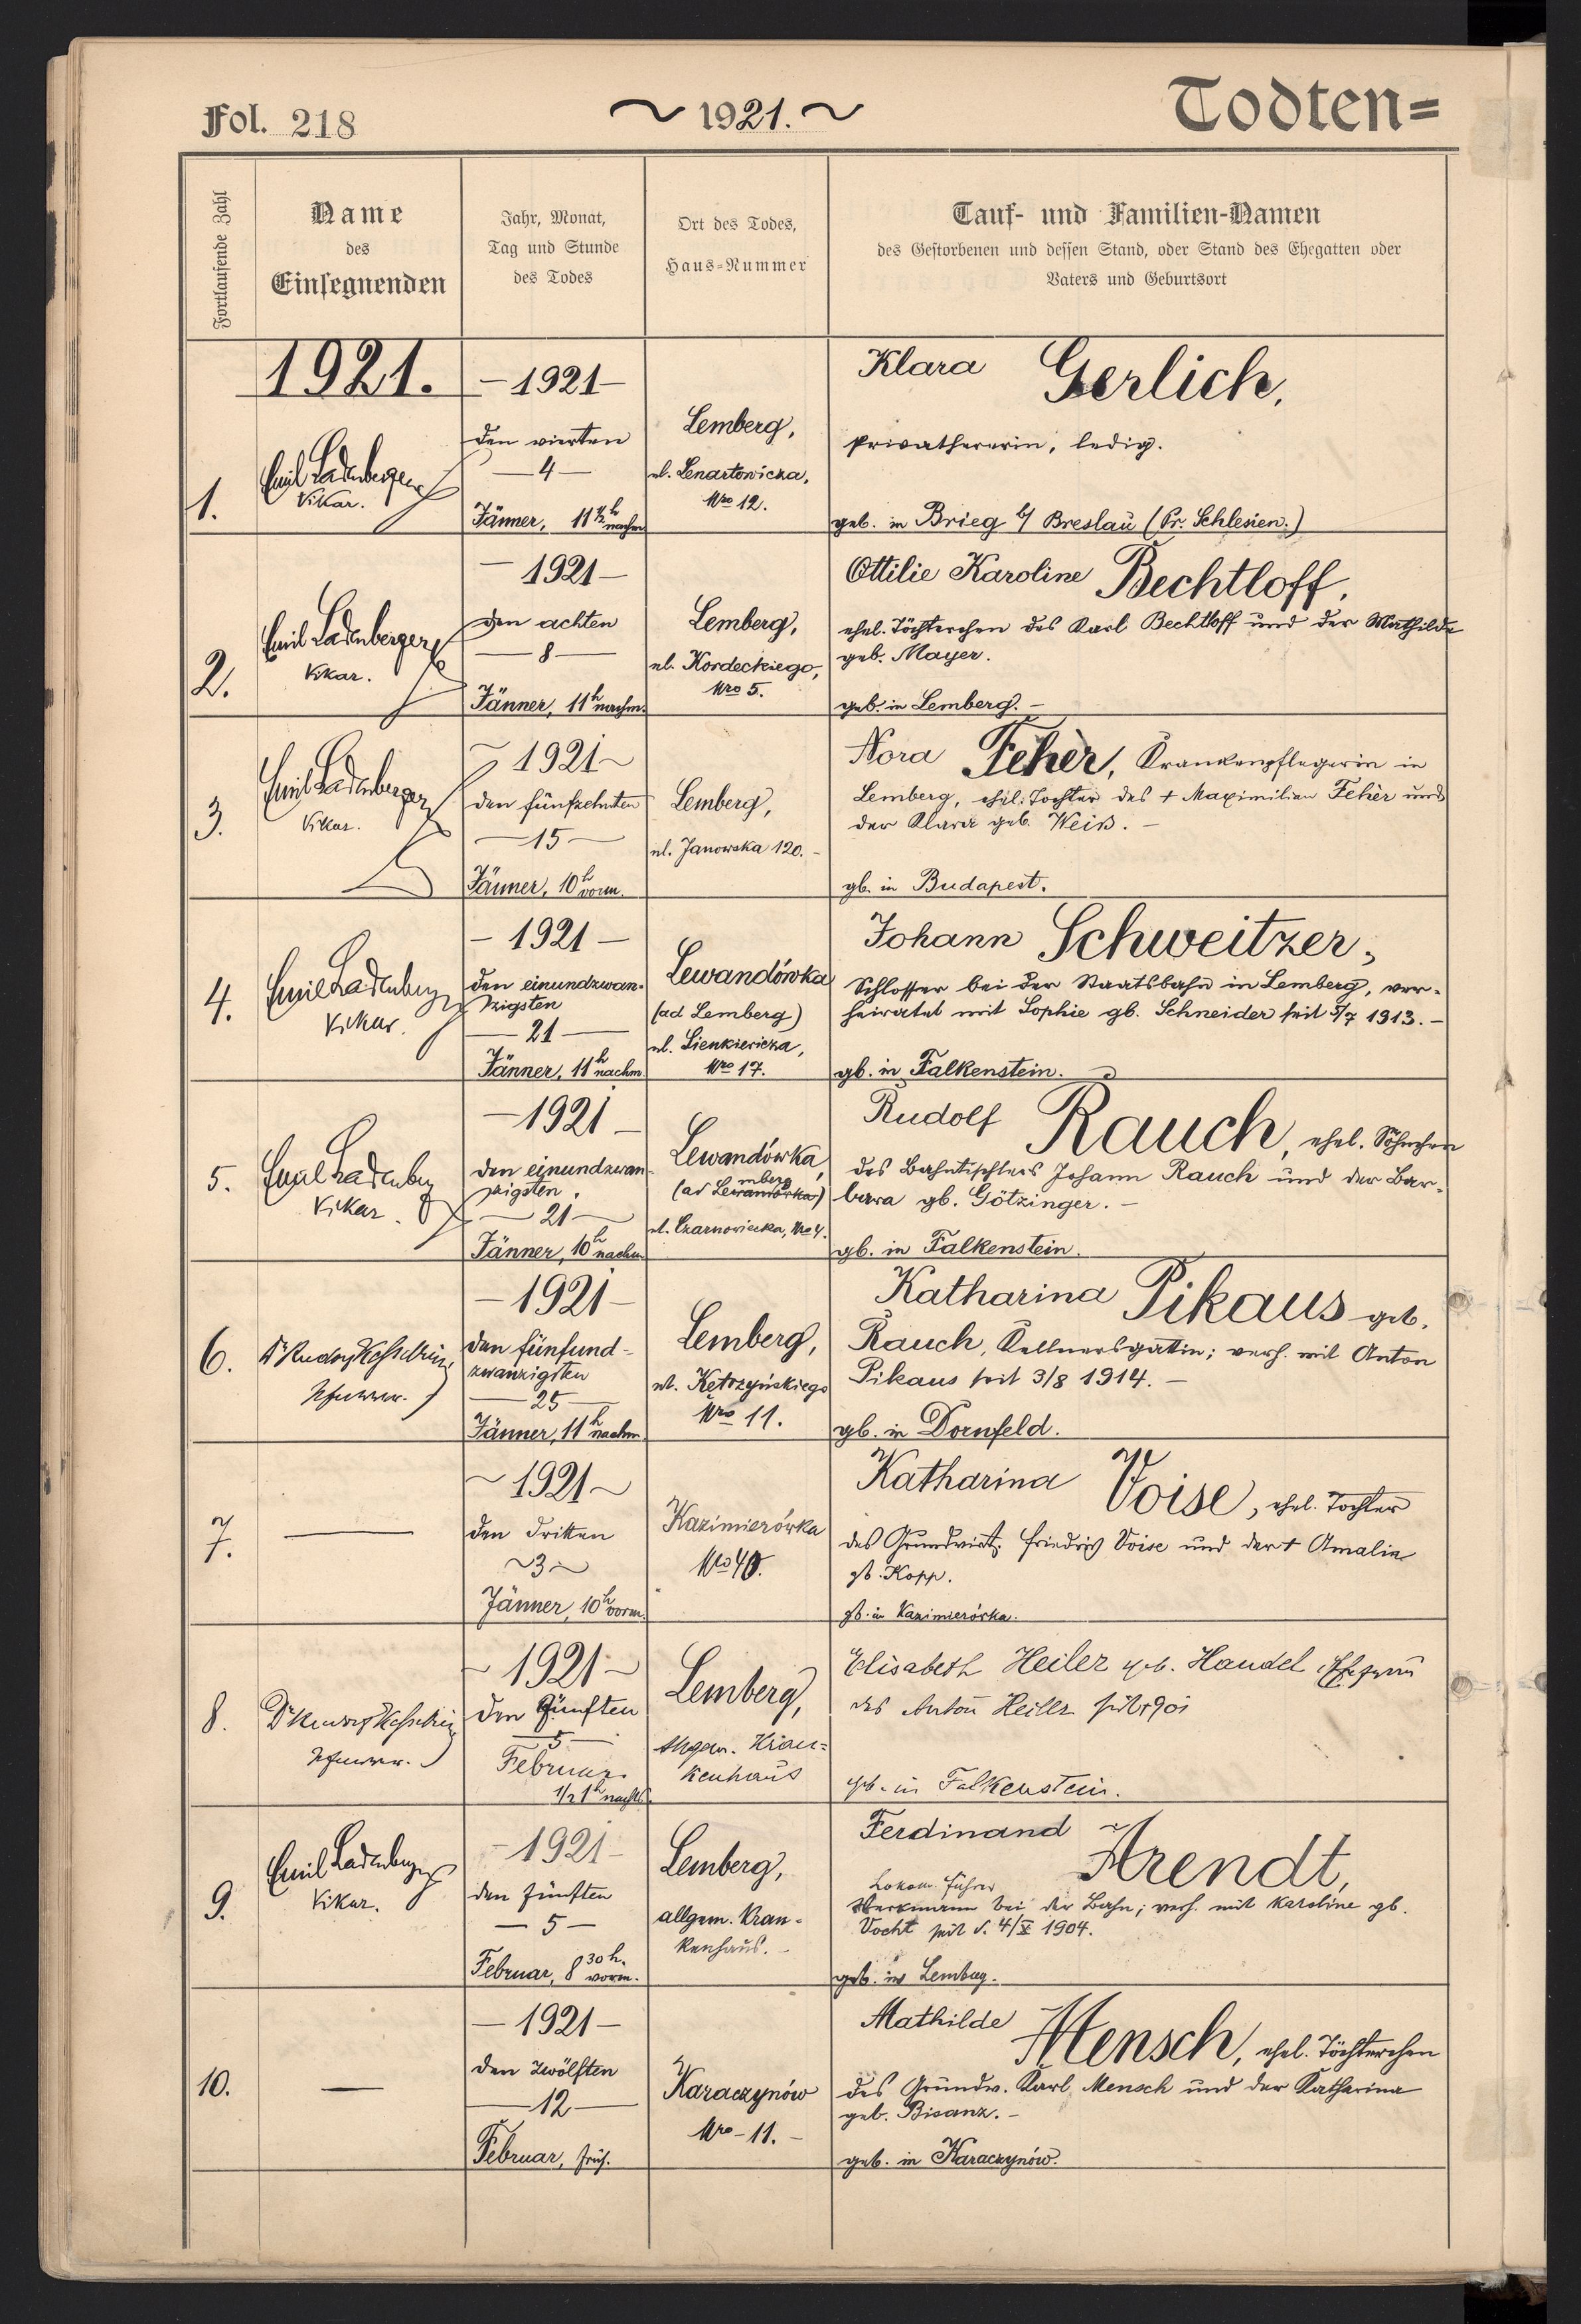 Fol. 218
~ 1921. ~
Todten=
Fortlaufende Zahl
Name
des
Einsegnenden
Jahr, Monat,
Tag und Stunde
des Todes
Ort des Todes,
Haus-Nummer
Tauf- und Familien-Namen
des Gestorbenen und dessen Stand, oder Stand des Ehegatten oder
Vaters und Geburtsort
1921.
1.
Emil Ladenberger
Vikar.
– 1921 –
den vierten
– 4 –
Jänner, 11 ½ h nachm
Lemberg,
ul. Lenartowicza,
Nro 12.
Klara Gerlich,
ledig.
geb. in Brieg b/ Breslau (Pr. Schlesien.)
2.
Emil Ladenberger
Vikar.
– 1921 –
den achten
– 8 –
Jänner, 11 h nachm.
Lemberg,
ul. Kordeckiego,
Nro 5.
Ottilie Karoline Bechtloff,
ehel. Töchterchen des Karl Bechtloff und der Mathilde
geb. Mayer.
geb. in Lemberg. –
3.
Emil Ladenberger
Vikar.
~ 1921 ~
den fünfzehnten
– 15 –
Jänner, 10 h vorm.
Lemberg,
ul. Janowska 120. –
Nora Fehèr, Krankenpflegerin in
Lemberg, ehel. Tochter des + Maximilian Fehèr und
der Klara geb. Weiß. –
gb. in Budapest.
4.
Emil Ladenberger
Vikar.
– 1921 –
den einundzwan-
zigsten
– 21 –
Jänner, 11 h nachm.
Lewandówka
(ad Lemberg)
ul. Sienkiewicza,
Nro 17.
Johann Schweitzer,
Schlosser bei der Staatsbahn in Lemberg, ver-
heiratet mit Sophie gb. Schneider seit 5/7 1913. –
gb. in Falkenstein.
5.
Emil Ladenberger
Vikar.
– 1921 –
den einundzwan-
zigsten.
– 21 –
Jänner, 10 h nachm
Lewandówka,
(ad Lemberg)
ul. Czarnowiecka, Nro 4.
Rudolf Rauch, ehel. Söhnchen
des Bahntischlers Johann Rauch und der Bar-
bara gb. Götzinger. –
gb. in Falkenstein.
6.
Dr Rudolf Kesselring
Pfarrer.
– 1921 –
den fünfund-
zwanzigsten
– 25 –
Jänner, 11 h nachm.
Lemberg,
ul. Kętrzyńskiego
Nro 11.
Katharina Pikaus geb.
Rauch, Kellnersgattin; verh. mit Anton
Pikaus seit 3/8 1914. –
gb. in Dornfeld.
7.
—
~ 1921 ~
den dritten
~ 3 ~
Jänner, 10 h vorm.
Kazimierówka
Nro 40.
Katharina Voise, ehel. Tochter
des Grundwirts Friedrich Voise und der + Amalie
gb. Kopp.
gb. in Kazimierówka.
8.
Dr Rudolf Kesselring
Pfarrer.
~ 1921 ~
den fünften
– 5 –
Februar
1/2 1 h nachts.
Lemberg,
Allgem. Kran=
kenhaus
Elisabeth Heiler geb. Handel
des Anton Heiler
geb. in Falkenstein.
9.
Emil Ladenberger
Vikar.
– 1921 –
den fünften
– 5 –
Februar, 8 30 h. vorm.
Lemberg,
allgem. Kran-
kenhaus. –
Ferdinand Arendt,
Lokom. Führer
Werkmann bei der Bahn; verh. mit Karoline gb.
Vocht seit d. 4/X 1904.
geb. in Lemberg.
10.
—
– 1921 –
den zwölften
– 12 –
Februar, früh.
Karaczynów
Nro – 11. –
Mathilde Mensch, ehel. Töchterchen
des Grundw. Karl Mensch und der Katharina
geb. Bisanz. –
geb. in Karaczynów.